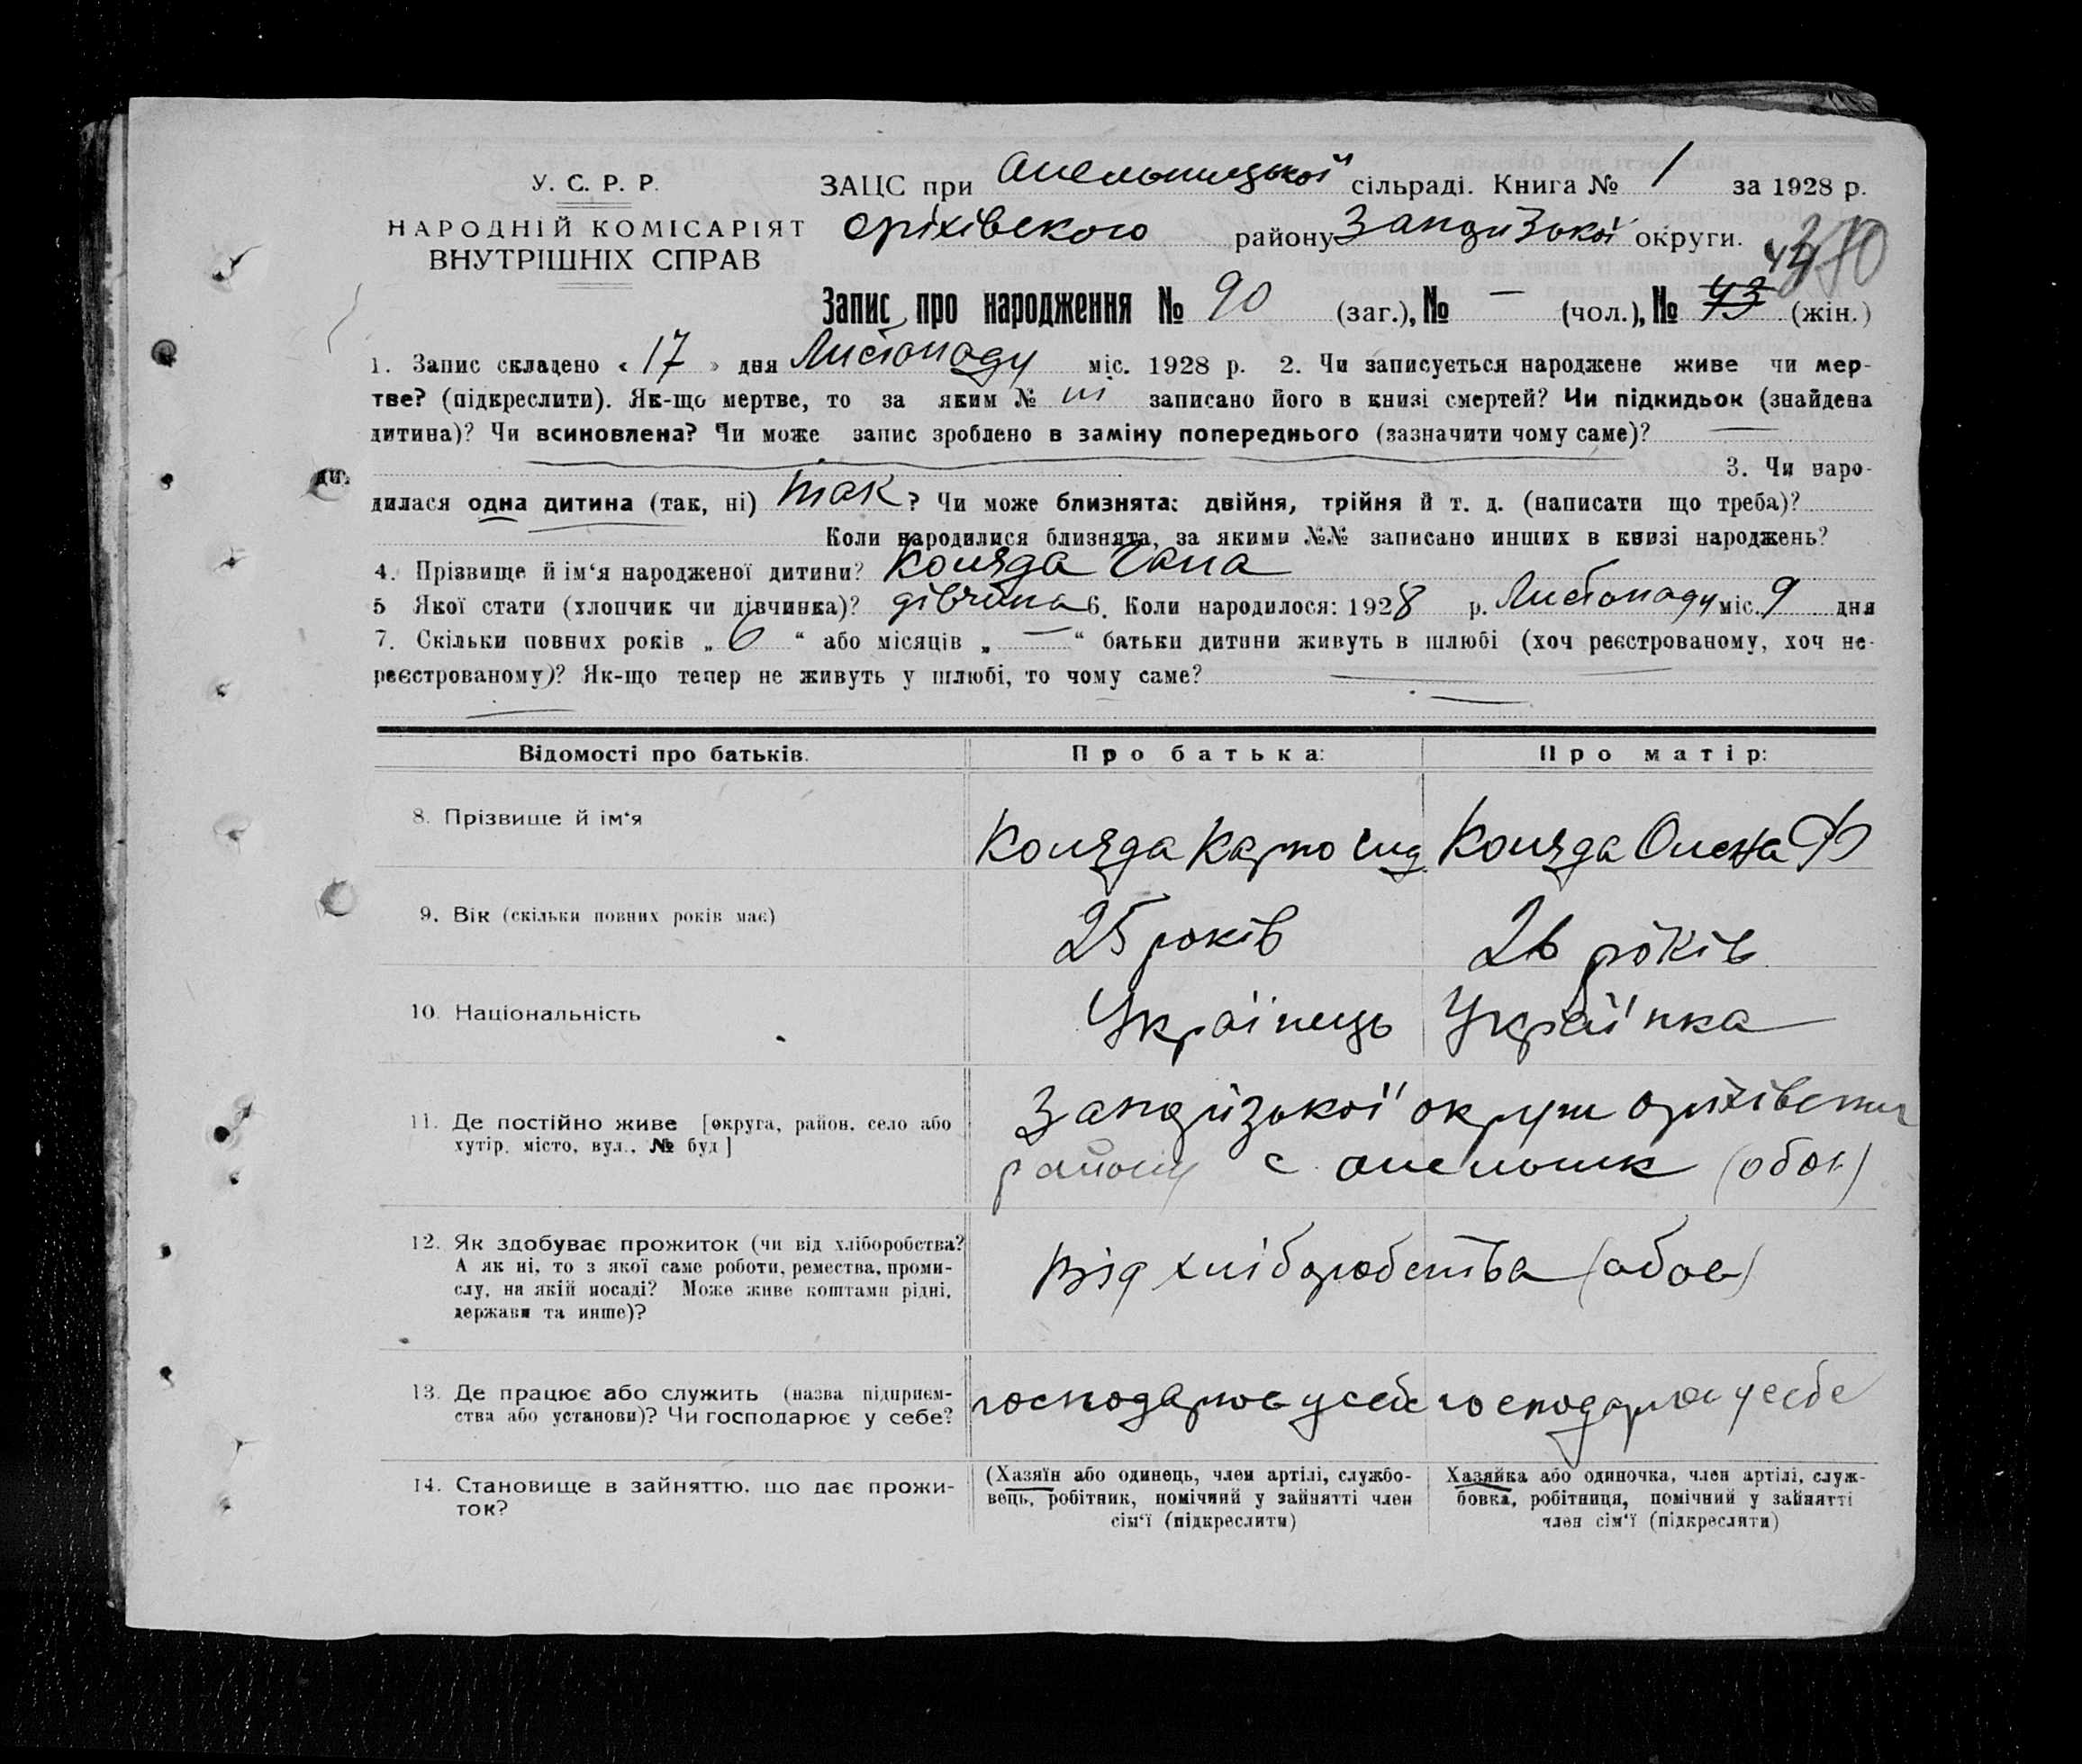 У. С. Р. Р.
НАРОДНІЙ КОМІСАРІЯТ
ВНУТРІШНІХ СПРАВ
ЗАЦС при Омельницької сільраді. Книга № 1 за 1928 р.
Оріхівского району Запорізької округи.
Запис про народження № 90 (заг.), № — (чол.), № 43 (жін.)
1. Запис складено « 17 » дня Листопаду міс. 1928 р. 2. Чи записується народжене живе чи мер-
тве? (підкреслити). Як-що мертве, то за яким № ні записано його в книзі смертей? Чи підкидьок (знайдена
дитина)? Чи всиновлена? Чи може запис зроблено в заміну попереднього (зазначити чому саме)? —
3. Чи наро-
дилася одна дитина (так, ні) так ? Чи може близнята: двійня, трійня й т. д. (написати що треба)?
Коли народилися близнята, за якими №№ записано инших в книзі народжень?
4. Прізвище й ім‘я народженої дитини? Коляда Гана
5 Якої стати (хлопчик чи дівчинка)? дівчина 6. Коли народилося: 1928 р. Листопаду міс. 9 дня
7. Скільки повних років „ 6 “ або місяців „ — “ батьки дитини живуть в шлюбі (хоч реєстрованому, хоч не-
реєстрованому)? Як-що тепер не живуть у шлюбі, то чому саме? —
Відомості про батьків. Про батька: Про матір:
8. Прізвище й ім‘я Коляда Карпо Коляда Олена Ф
9. Вік (скільки повних років має) 25 років 26 років
10. Національність Українець Українка
11. Де постійно живе [округа, район, село або
хутір, місто, вул., № буд]
Запорізької округи Оріхівського
району с. Омельник (обоє)
12. Як здобуває прожиток (чи від хліборобства?
А як ні, то з якої саме роботи, ремества, проми-
слу, на якій посаді? Може живе коштами рідні,
держави та инше)?
Від хліборобства (обоє)
13. Де працює або служить (назва підприєм-
ства або установи)? Чи господарює у себе?
господарює у себе господарює у себе
14. Становище в зайняттю, що дає прожи-
ток?
(Хазяїн або одинець, член артілі, службо-
вець, робітник, помічний у зайнятті член
сім‘ї (підкреслити)
Хазяйка або одиночка, член артілі, служ-
бовка, робітниця, помічний у зайнятті
член сім‘ї (підкреслити)